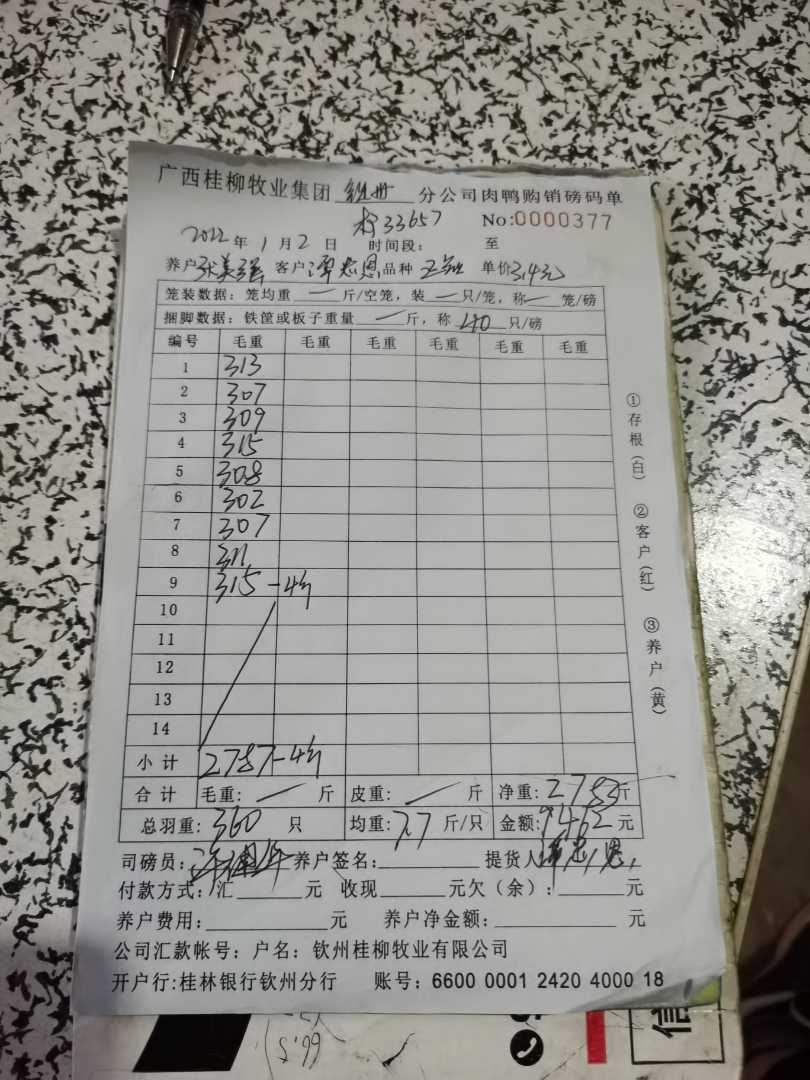 广西桂柳牧业集团 钦州 分公司肉鸭购销磅码单
33657 No:0000377
2022年1月2日 时间段: 至
养户 张美强 客户 谭忠恩 品种 单价3.4元
笼装数据：笼均重 — 斤/空笼，装 — 只/笼，称 — 笼/磅
捆脚数据：铁筐或板子重量 — 斤，称 40 只/磅
编号 毛重 毛重 毛重 毛重 毛重 毛重
1 313
2 307
3 309
4 315
5 308
6 302
7 307
8 311
9 315-4斤
10
11
12
13
14
小计 2787-4斤
合计 毛重: — 斤 皮重: — 斤 净重: 斤
总羽重: 360 只 均重: 7.7 斤/只 金额: 9462 元
司磅员: 养户签名: 提货人 谭忠恩
付款方式: 汇 元 收现 元欠（余）: 元
养户费用: 元 养户净金额: 元
公司汇款帐号：户名：钦州桂柳牧业有限公司
开户行:桂林银行钦州分行 账号：6600 0001 2420 4000 18
①存根（白） ②客户（红） ③养户（黄）
信